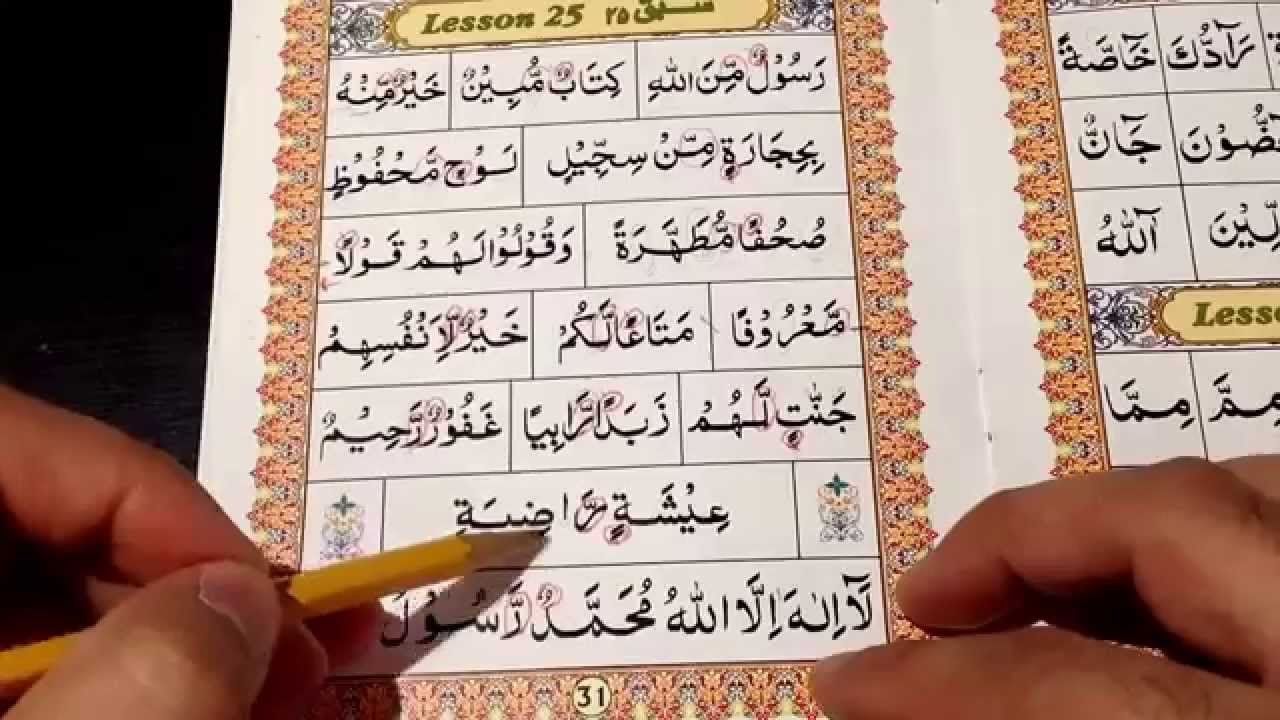 Lesson 25 سبق ٢٥
رَسُوْلٌ مِّنَ اللهِ كِتَابٌ مُّبِيْنٌ خَيْرٌ مِّنْهُ
بِحِجَارَةٍ مِّنْ سِجِّيْلٍ لَوْحٍ مَّحْفُوْظٍ
صُحُفًا مُّطَهَّرَةً وَقُوْلُوْا لَهُمْ قَوْلًا
مَّعْرُوْفًا مَتَاعًا لَّكُمْ خَيْرٌ لِّاَنْفُسِهِمْ
جَنّٰتٍ لَّهُمْ زَبَدًا رَّابِيًا غَفُوْرٌ رَّحِيْمٌ
عِيْشَةٍ رَّاضِيَةٍ
لَآ اِلٰهَ اِلَّا اللهُ مُحَمَّدٌ رَّسُوْلُ
31
رَآدُّكَ خَآصَّةً
جَآنٌّ
آللهُ
Lesso
مِمَّ مِمَّا